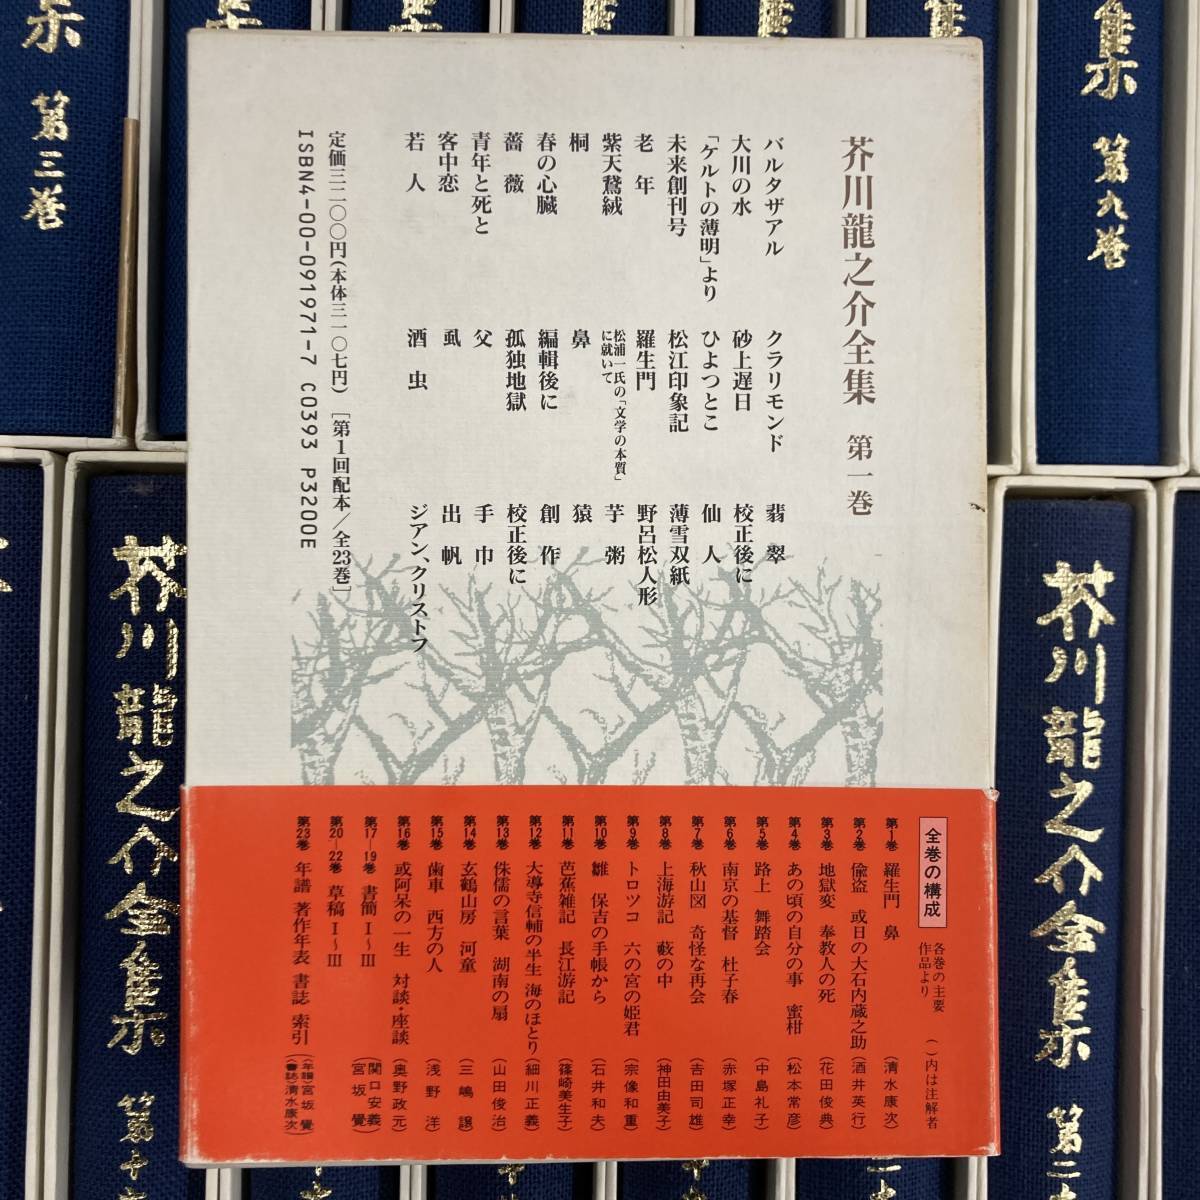 芥川龍之介全集 第一巻
バルタザアル
大川の水
「ケルトの薄明」より
未来創刊号
老年
紫天鵞絨
桐
春の心臓
薔薇
青年と死と
客中恋
若人
クラリモンド
砂上遅日
ひよつとこ
松江印象記
羅生門
松浦一氏の「文学の本質」
に就いて
鼻
編輯後に
孤独地獄
父
虱
酒虫
翡翠
校正後に
仙人
薄雪双紙
野呂松人形
芋粥
猿
創作
校正後に
手巾
出帆
ジアン、クリストフ
定価三二〇〇円(本体三一〇七円) [第1回配本/全23巻]
ISBN4-00-091971-7 C0393 P3200E
全巻の構成 各巻の主要
作品より ( )内は注解者
第1巻 羅生門 鼻 (清水康次)
第2巻 偸盗 或日の大石内蔵之助 (酒井英行)
第3巻 地獄変 奉教人の死 (花田俊典)
第4巻 あの頃の自分の事 蜜柑 (松本常彦)
第5巻 路上 舞踏会 (中島礼子)
第6巻 南京の基督 杜子春 (赤塚正幸)
第7巻 秋山図 奇怪な再会 (吉田司雄)
第8巻 上海游記 藪の中 (神田由美子)
第9巻 トロツコ 六の宮の姫君 (宗像和重)
第10巻 雛 保吉の手帳から (石井和夫)
第11巻 芭蕉雑記 長江游記 (篠崎美生子)
第12巻 大導寺信輔の半生 海のほとり (細川正義)
第13巻 侏儒の言葉 湖南の扇 (山田俊治)
第14巻 玄鶴山房 河童 (三嶋譲)
第15巻 歯車 西方の人 (浅野洋)
第16巻 或阿呆の一生 対談・座談 (奥野政元)
第17―19巻 書簡 I〜III (関口安義 宮坂覺)
第20―22巻 草稿 I〜III
第23巻 年譜 著作年表 書誌 索引 ((年譜)宮坂覺 (書誌)清水康次)
集 第三巻
集 第九巻
芥川龍之介全集 第十
芥川龍之介全集 第二